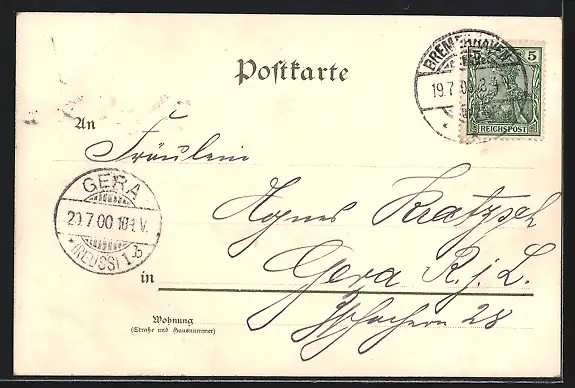 Postkarte
BREMERHAVEN
19.7.00
5
REICHSPOST
An
Fräulein
Agnes Kratzsch
GERA
20.7.00 10-11V.
* (REUSS) 1.b
Gera R. j. L.
in
28
Wohnung
(Straße und Hausnummer)